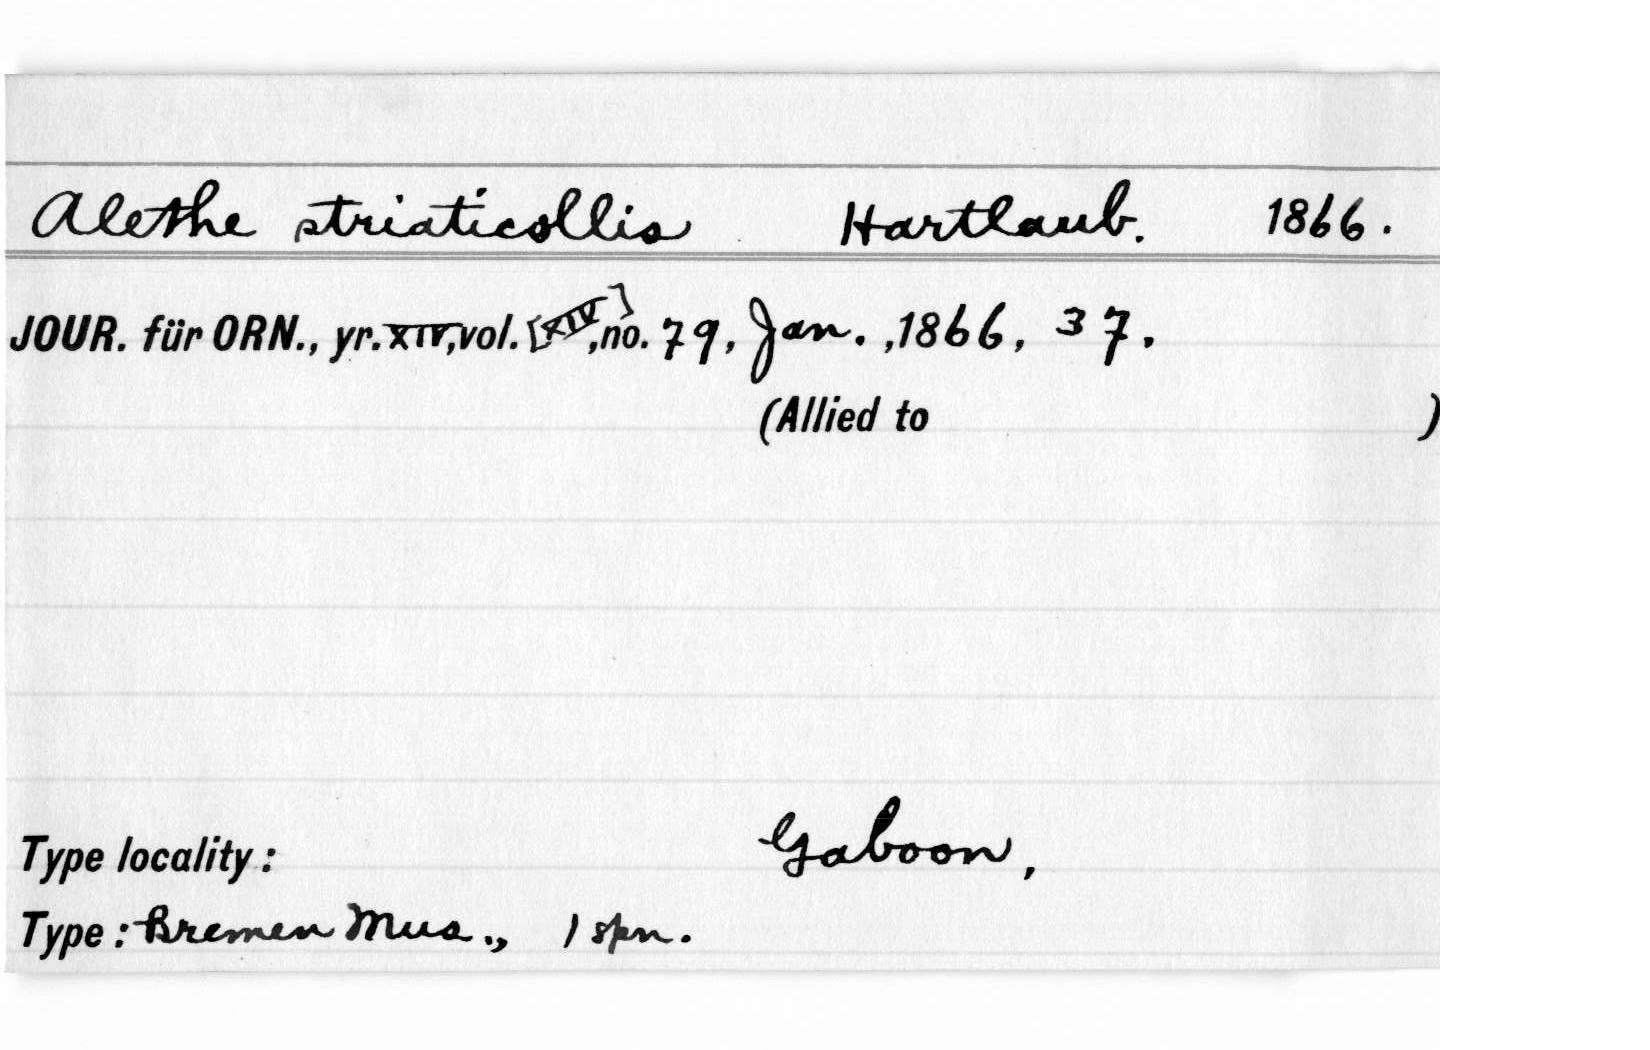 Alethe striaticollis Hartlaub. 1866.
JOUR. für ORN., yr. XIV, vol. [XIV], no. 79, Jan. , 1866, 37.
(Allied to )
Type locality: Gaboon,
Type: Bremen Mus., 1 spn.